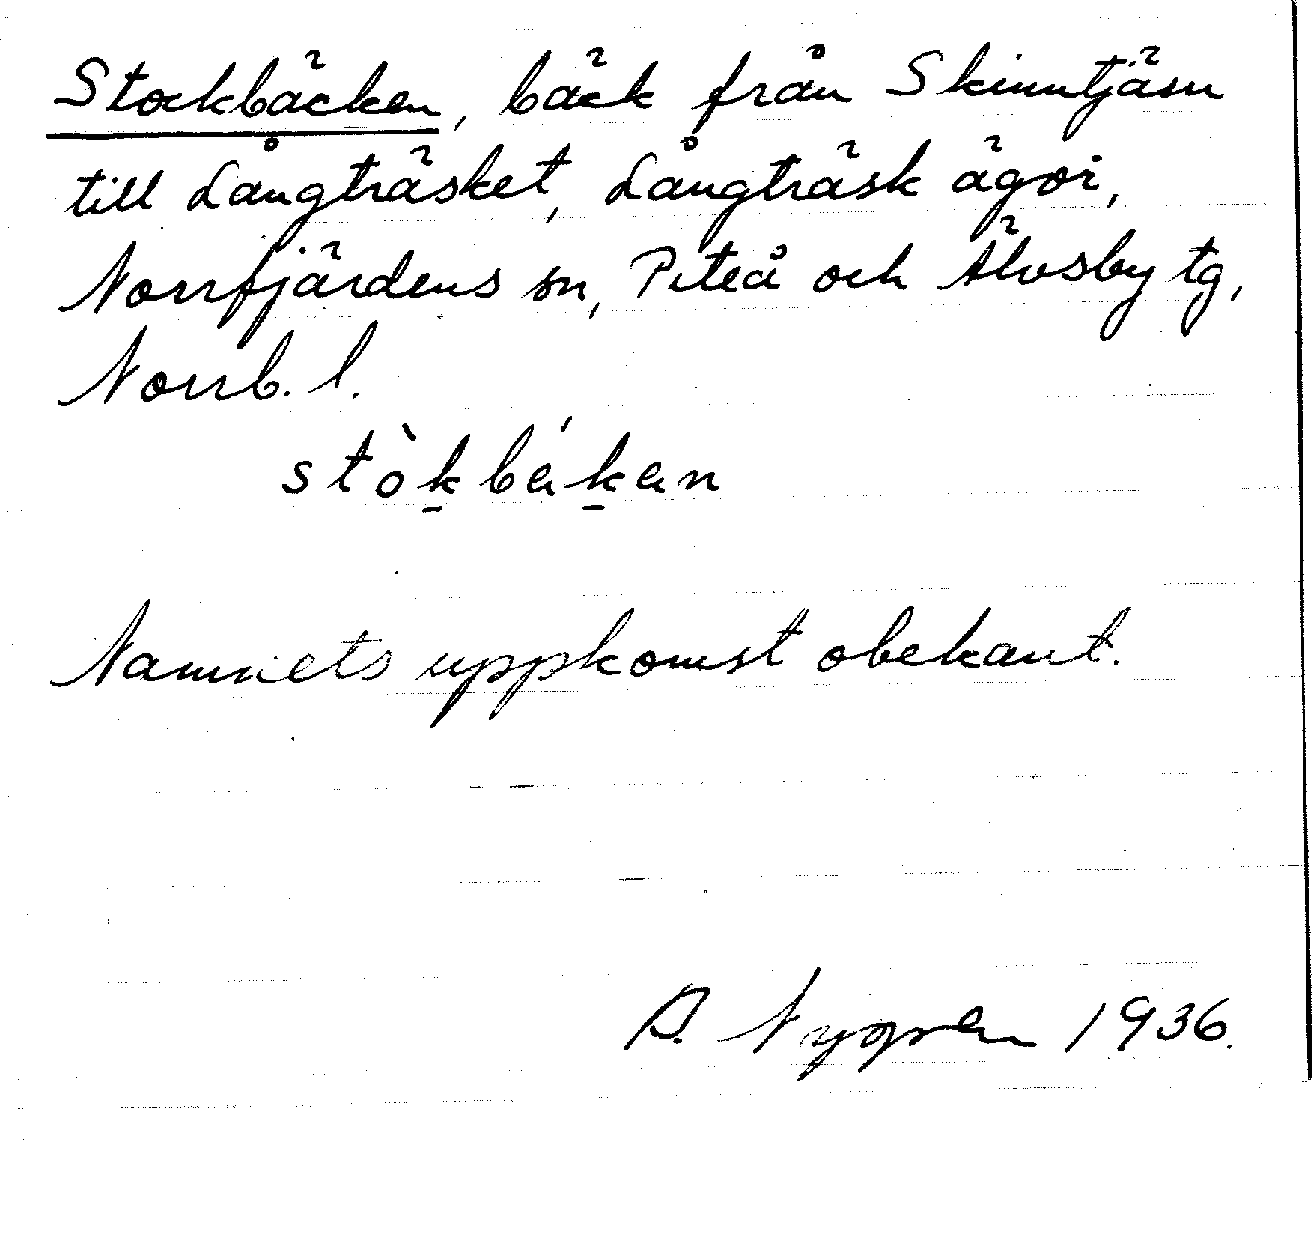 Stockbäcken, bäck från Skinntjäsn
till Långträsket, Långträsk ägor,
Norrfjärdens sn, Piteå och Älvsby tg,
Norrb. l.
stòkbákan
Namnets uppkomst obekant.
Nygren 1936.